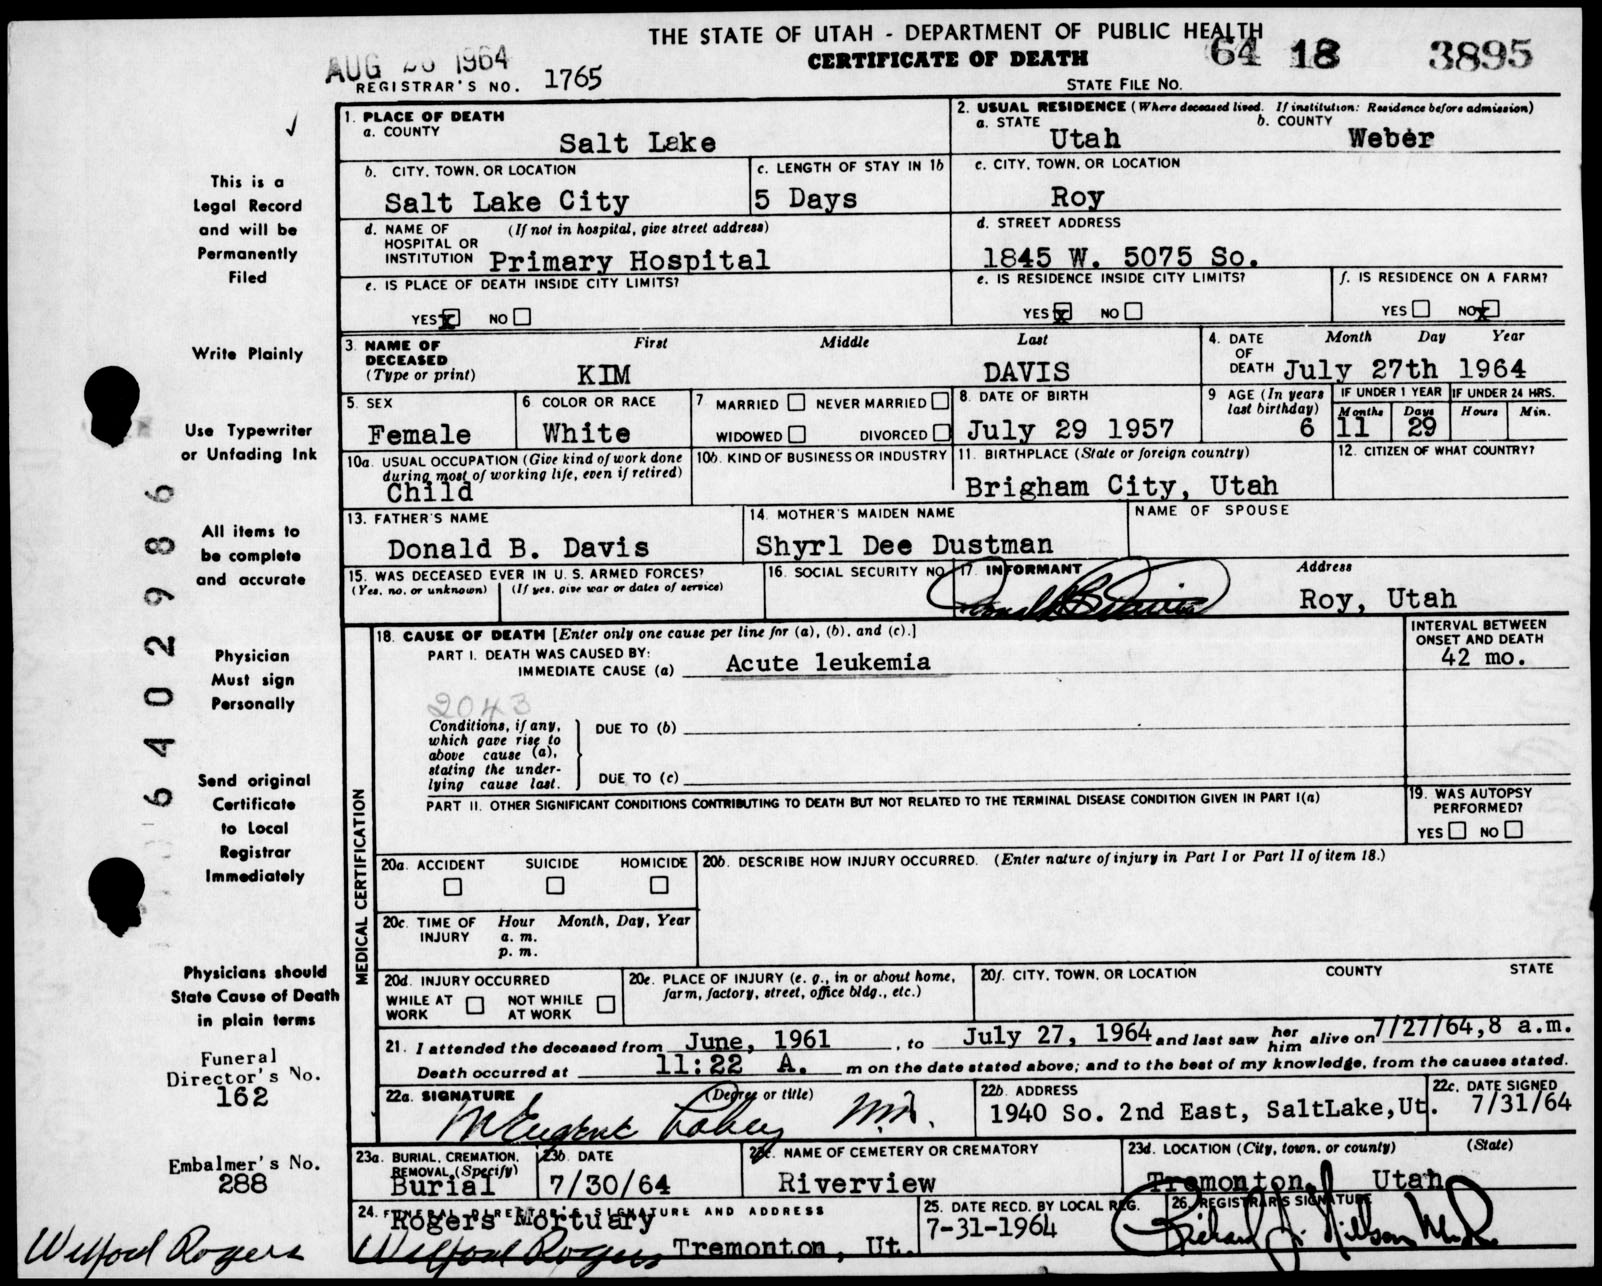 THE STATE OF UTAH - DEPARTMENT OF PUBLIC HEALTH
CERTIFICATE OF DEATH
AUG 1964
64 18 3895
REGISTRAR'S NO. 1765
STATE FILE NO.
1. PLACE OF DEATH
a. COUNTY
Salt Lake
2. USUAL RESIDENCE (Where deceased lived. If institution: Residence before admission)
a. STATE
Utah
b. COUNTY
Weber
b. CITY, TOWN, OR LOCATION
Salt Lake City
c. LENGTH OF STAY IN 1b
5 Days
c. CITY, TOWN, OR LOCATION
Roy
d. NAME OF HOSPITAL OR INSTITUTION
(If not in hospital, give street address)
Primary Hospital
d. STREET ADDRESS
1845 W. 5075 So.
e. IS PLACE OF DEATH INSIDE CITY LIMITS?
YES X NO
e. IS RESIDENCE INSIDE CITY LIMITS?
YES X NO
f. IS RESIDENCE ON A FARM?
YES NO X
3. NAME OF DECEASED
(Type or print)
First Middle Last
KIM DAVIS
4. DATE OF DEATH
Month Day Year
July 27th 1964
5. SEX
Female
6 COLOR OR RACE
White
7 MARRIED NEVER MARRIED
WIDOWED DIVORCED
8. DATE OF BIRTH
July 29 1957
9 AGE (In years last birthday)
6
IF UNDER 1 YEAR
Months Days
11 29
IF UNDER 24 HRS.
Hours Min.
10a. USUAL OCCUPATION (Give kind of work done during most of working life, even if retired)
Child
10b. KIND OF BUSINESS OR INDUSTRY
11. BIRTHPLACE (State or foreign country)
Brigham City, Utah
12. CITIZEN OF WHAT COUNTRY?
13. FATHER'S NAME
Donald B. Davis
14. MOTHER'S MAIDEN NAME
Shyrl Dee Dustman
NAME OF SPOUSE
15. WAS DECEASED EVER IN U. S. ARMED FORCES?
(Yes, no, or unknown) (If yes, give war or dates of service)
16. SOCIAL SECURITY NO.
17. INFORMANT
Donald B Davis
Address
Roy, Utah
MEDICAL CERTIFICATION
18. CAUSE OF DEATH [Enter only one cause per line for (a), (b), and (c).]
PART I. DEATH WAS CAUSED BY:
IMMEDIATE CAUSE (a) Acute leukemia
INTERVAL BETWEEN ONSET AND DEATH
42 mo.
2043
Conditions, if any,
which gave rise to
above cause (a),
stating the under-
lying cause last.
DUE TO (b)
DUE TO (c)
PART II. OTHER SIGNIFICANT CONDITIONS CONTRIBUTING TO DEATH BUT NOT RELATED TO THE TERMINAL DISEASE CONDITION GIVEN IN PART I(a)
19. WAS AUTOPSY PERFORMED?
YES NO
20a. ACCIDENT SUICIDE HOMICIDE
20b. DESCRIBE HOW INJURY OCCURRED. (Enter nature of injury in Part I or Part II of item 18.)
20c. TIME OF INJURY
Hour Month, Day, Year
a. m.
p. m.
20d. INJURY OCCURRED
WHILE AT WORK
NOT WHILE AT WORK
20e. PLACE OF INJURY (e. g., in or about home, farm, factory, street, office bldg., etc.)
20f. CITY, TOWN, OR LOCATION COUNTY STATE
21. I attended the deceased from June, 1961, to July 27, 1964 and last saw her him alive on 7/27/64, 8 a.m.
Death occurred at 11:22 A. m on the date stated above; and to the best of my knowledge, from the causes stated.
22a. SIGNATURE
(Degree or title)
M Eugene Lahey M.D.
22b. ADDRESS
1940 So. 2nd East, SaltLake,Ut.
22c. DATE SIGNED
7/31/64
23a. BURIAL, CREMATION, REMOVAL (Specify)
Burial
23b. DATE
7/30/64
23c. NAME OF CEMETERY OR CREMATORY
Riverview
23d. LOCATION (City, town, or county) (State)
Tremonton, Utah
24. FUNERAL DIRECTOR'S SIGNATURE AND ADDRESS
Rogers Mortuary
Welford Rogers Tremonton, Ut.
25. DATE RECD. BY LOCAL REG.
7-31-1964
26. REGISTRAR'S SIGNATURE
This is a
Legal Record
and will be
Permanently
Filed
Write Plainly
Use Typewriter
or Unfading Ink
All items to
be complete
and accurate
Physician
Must sign
Personally
Send original
Certificate
to Local
Registrar
Immediately
Physicians should
State Cause of Death
in plain terms
Funeral
Director's No.
162
Embalmer's No.
288
Welford Rogers
6 4 0 2 9 8 6